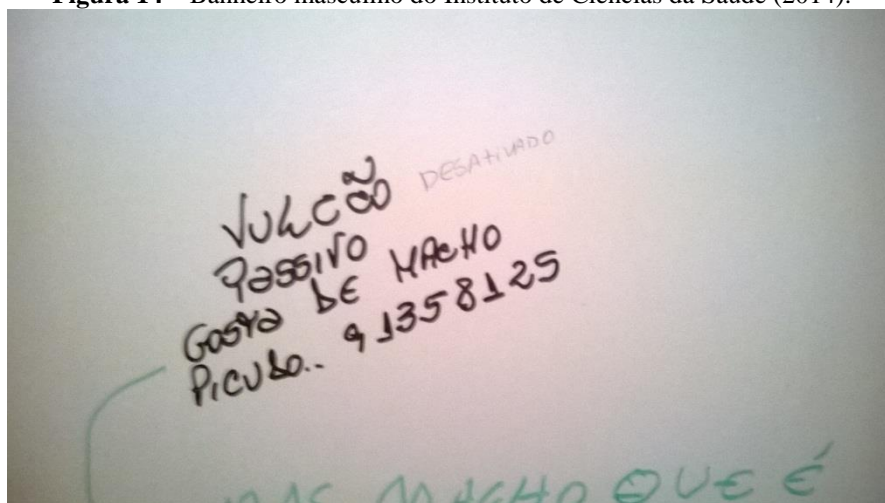 Figura 14 – Banheiro masculino do Instituto de Ciências da Saúde (2014).
VULCÃO DESATIVADO
PASSIVO
GOSTA DE MACHO
PICUDO.. 91358125
MAS MACHO QUE É